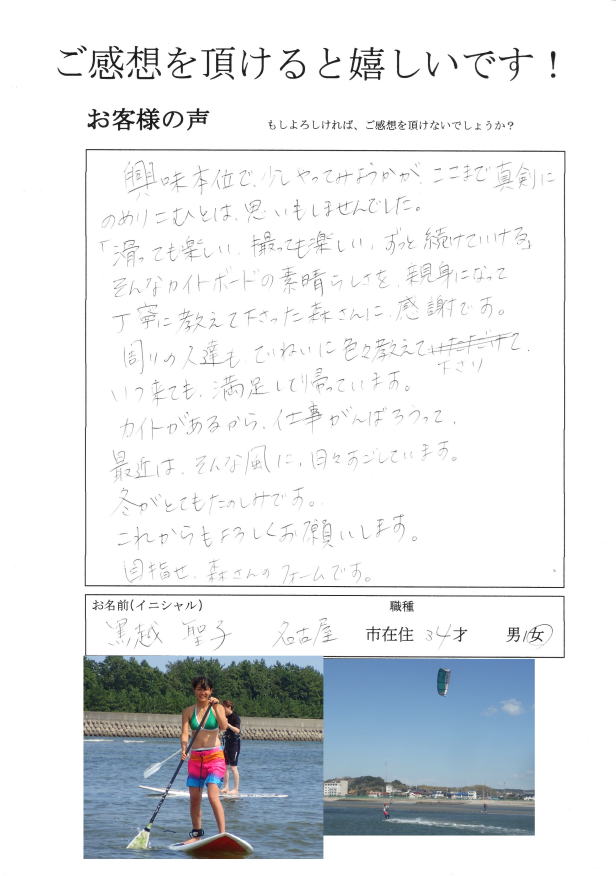 ご感想を頂けると嬉しいです！
お客様の声　もしよろしければ、ご感想を頂けないでしょうか？
興味本位で、少しやってみようかが、ここまで真剣に
のめりこむとは、思いもしませんでした。
「滑っても楽しい、撮っても楽しい、ずっと続けていける」
そんなカイトボードの素晴らしさを、親身になって
丁寧に教えて下さった森さんに、感謝です。
周りの人達も、ていねいに色々教えて下さり、
いつ来ても、満足して帰っています。
カイトがあるから、仕事がんばろうって、
最近は、そんな風に、日々すごしています。
冬がとてもたのしみです。
これからもよろしくお願いします。
目指せ、森さんのフォームです。
お名前(イニシャル)　職種
黒越 聖子　名古屋 市在住 34才 男/女